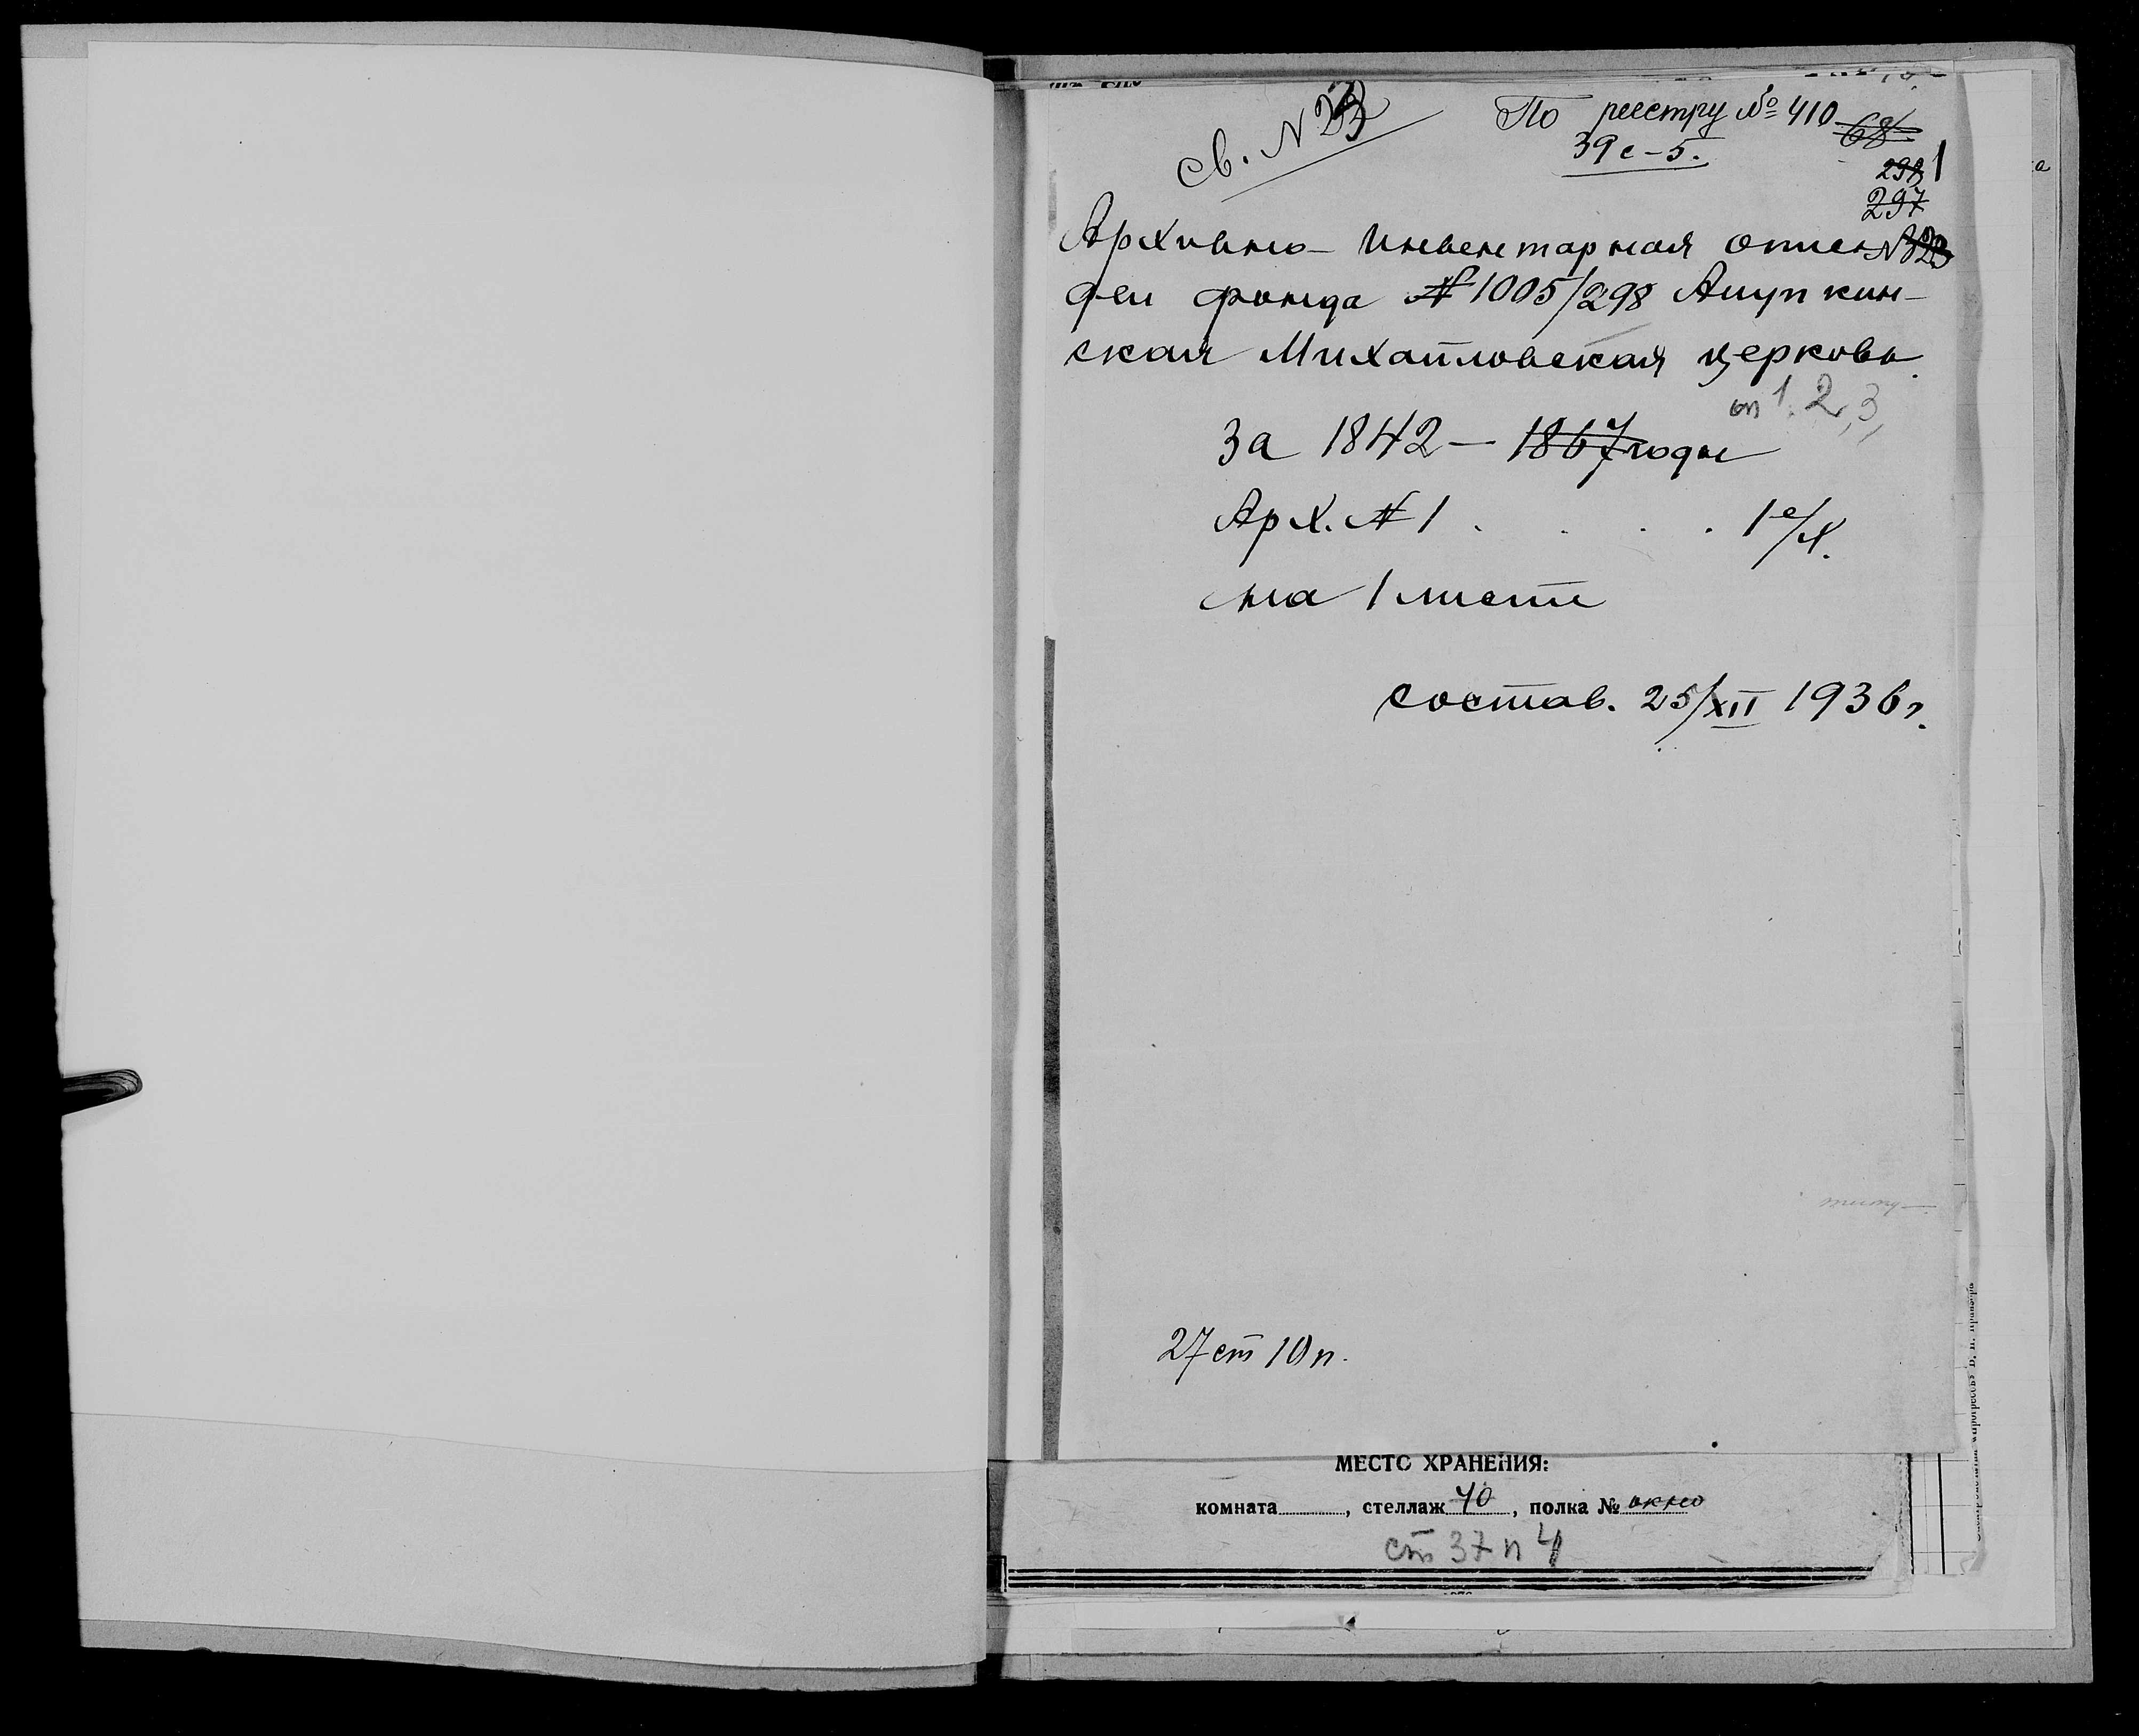 св. N 23
По реестру № 410
68
39 с-5.
298
1
297
Архивно-Инвентарная опись N 323
дел фонда № 1005/298 Ашупкин-
ская Михайловская церковь
оп 1. 2, 3,
За 1842 - 1867 годы
Арх. № 1 . . . . 1 е/х.
на 1 листе
состав. 25/XII 1936 г.
27 ст 10 п.
МЕСТО ХРАНЕНИЯ:
комната , стеллаж 40 , полка № окно
ст 37 п 4